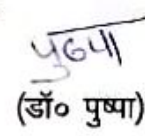 पुष्पा
(डॉ० पुष्पा)